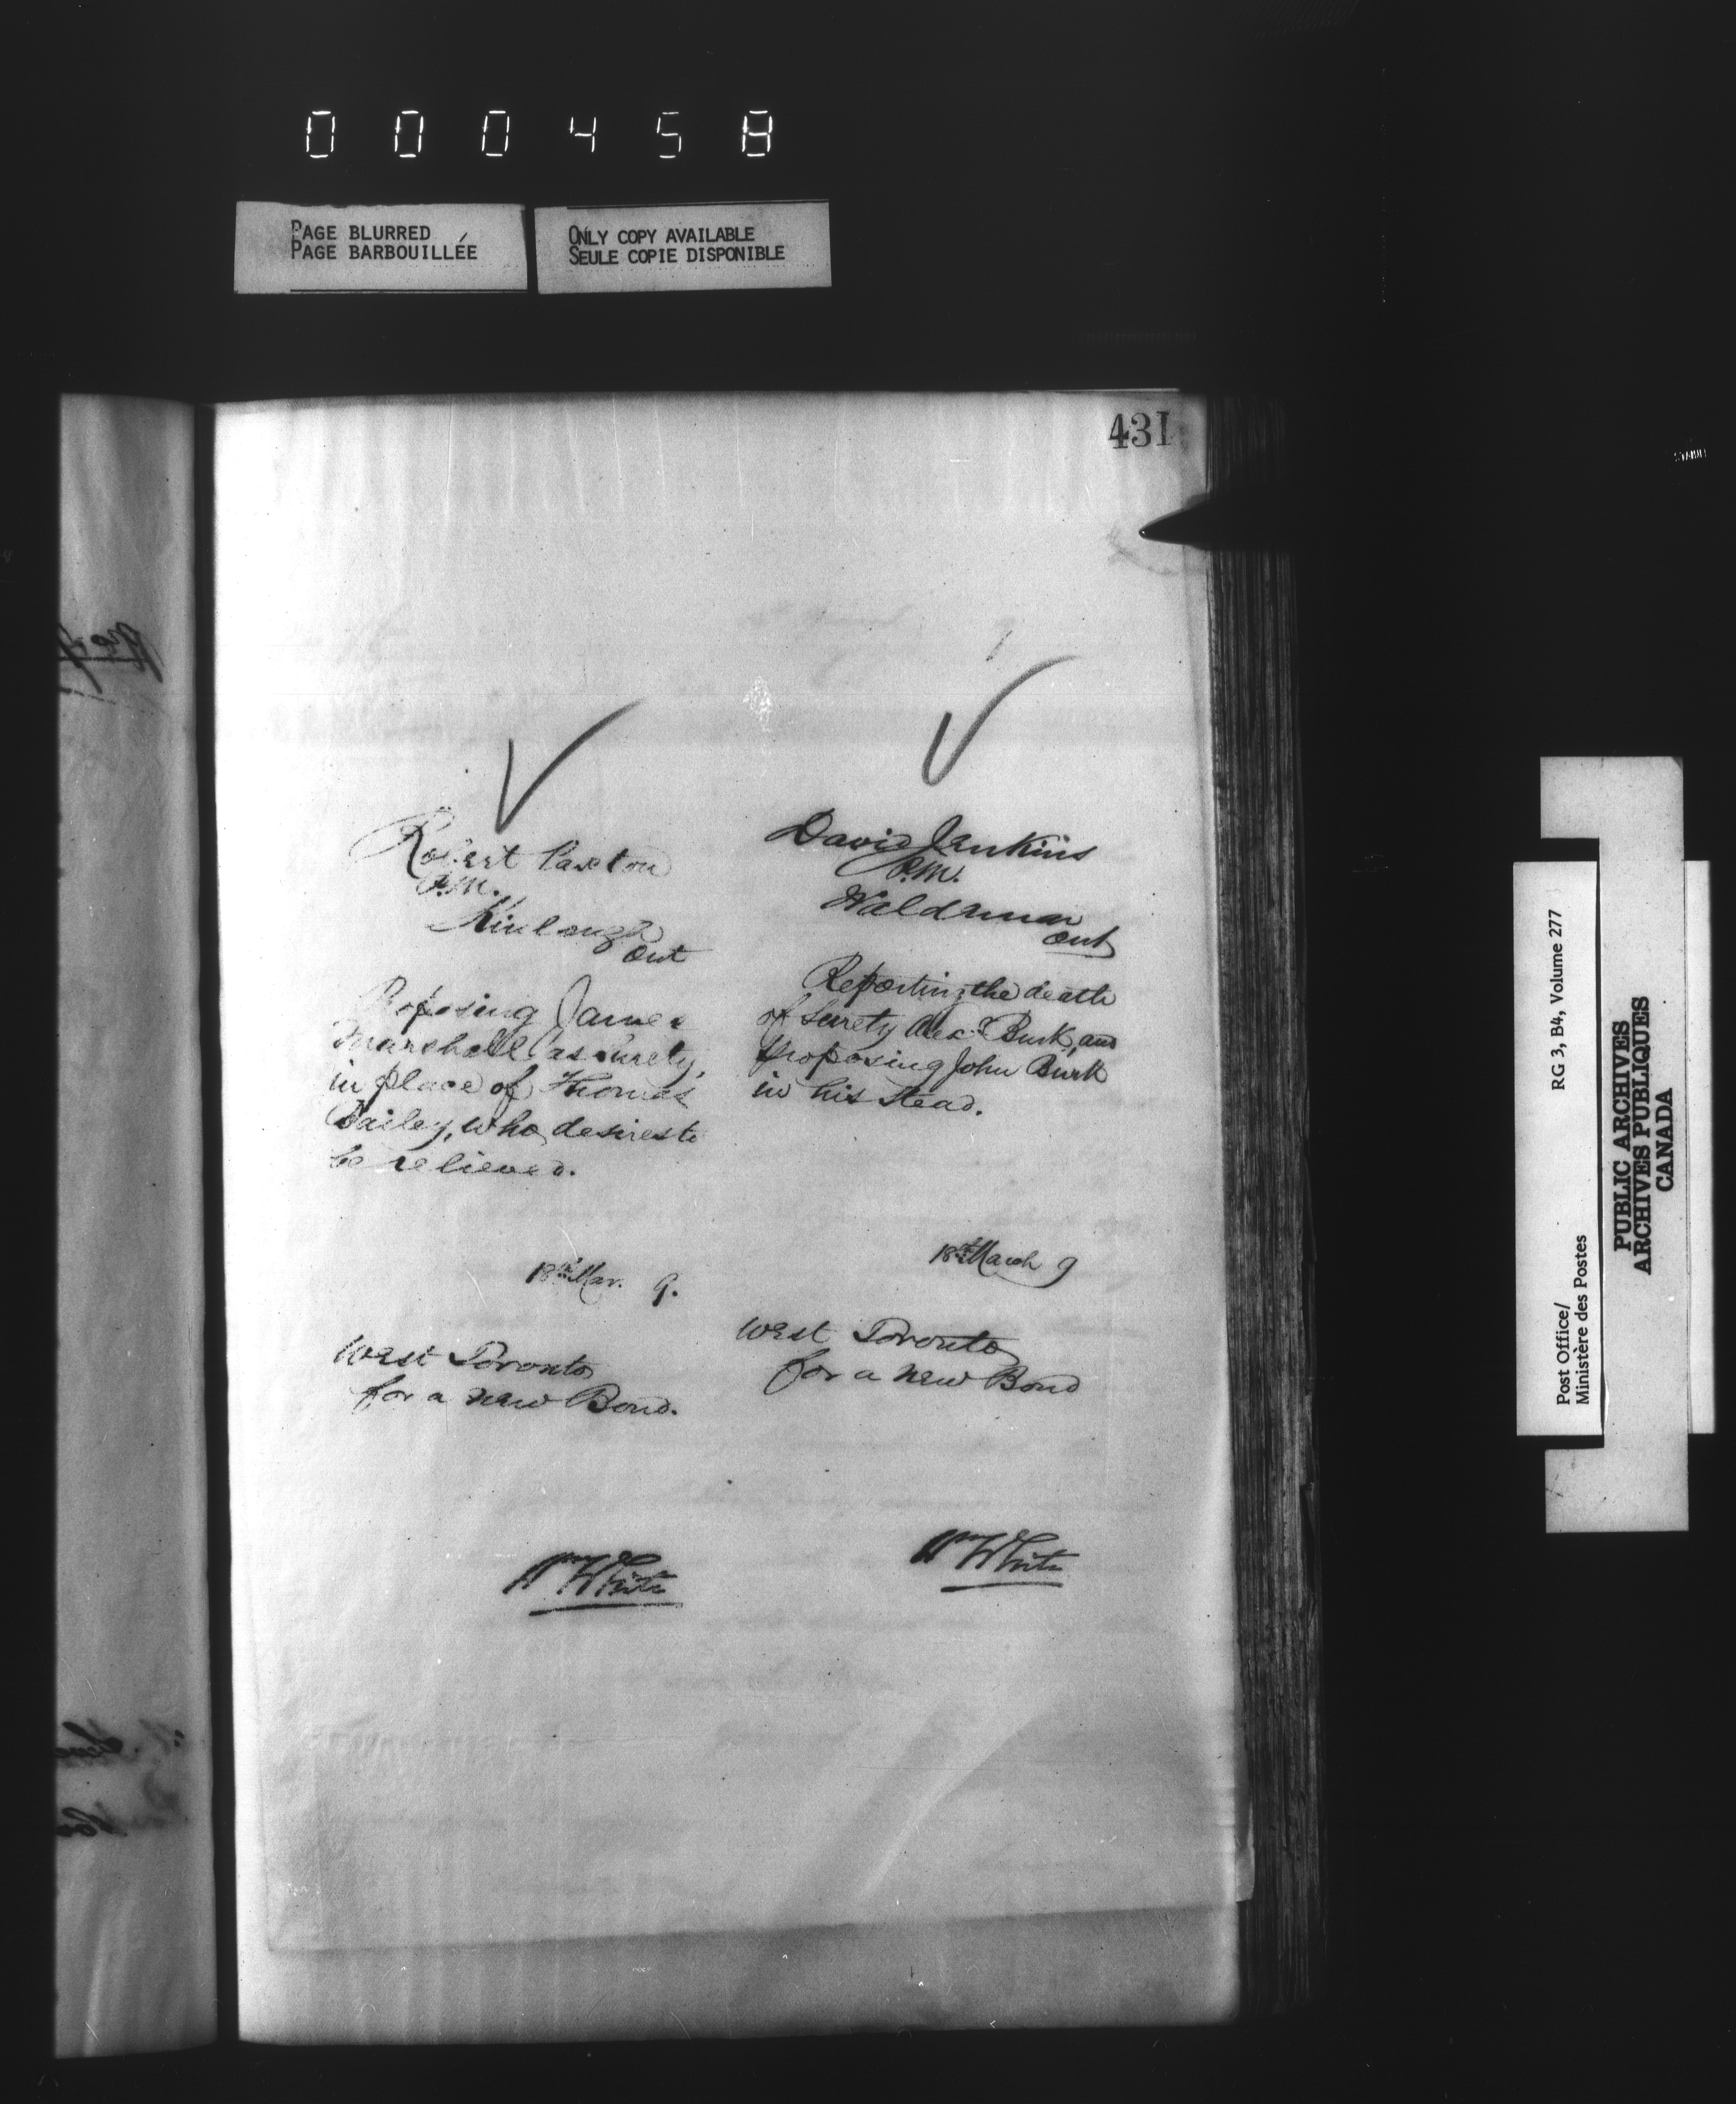 000458
PAGE BLURRED
PAGE BARBOUILLÉE
ONLY COPY AVAILABLE
SEULE COPIE DISPONIBLE
431
Robert Paxton
P.M.
Kinlough
Ont
Proposing James
Marshall as surety,
in place of Thomas
Bailey, who desires to
be relieved.
18th Mar. 9.
West Toronto
for a new Bond.
Wm White
David Jenkins
P.M.
Waldemar
Ont
Reporting the death
of surety Alexr Burk, and
proposing John Burk
in his stead.
18th March 9
West Toronto
for a new Bond
Wm White
Post Office/
Ministère des Postes
RG 3, B4, Volume 277
PUBLIC ARCHIVES
ARCHIVES PUBLIQUES
CANADA